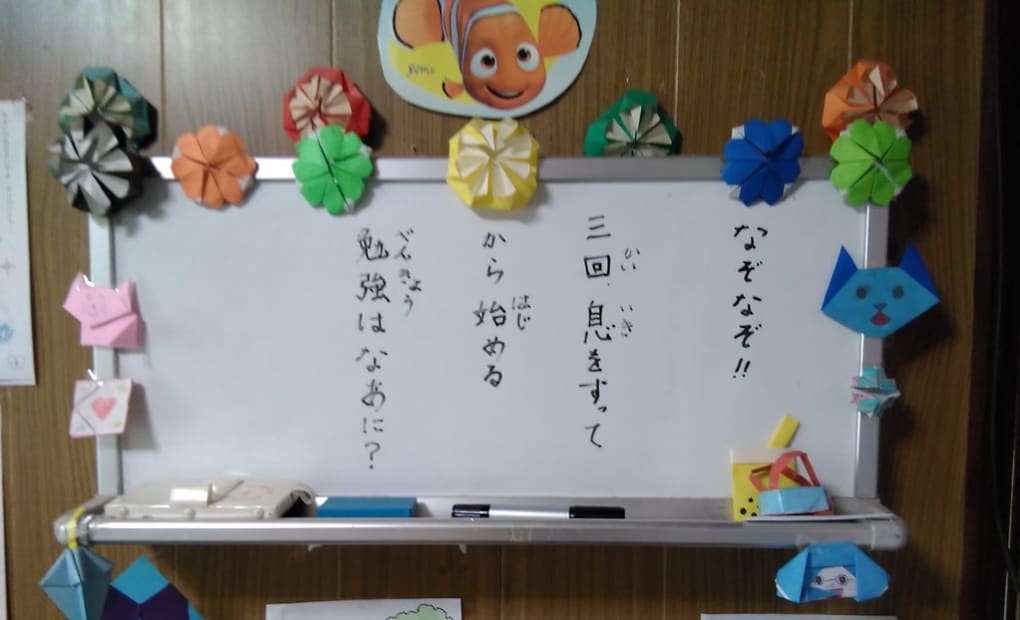 なぞなぞ!!
三回、息をすって
かい いき
から 始める
はじ
勉強はなあに?
べんきょう